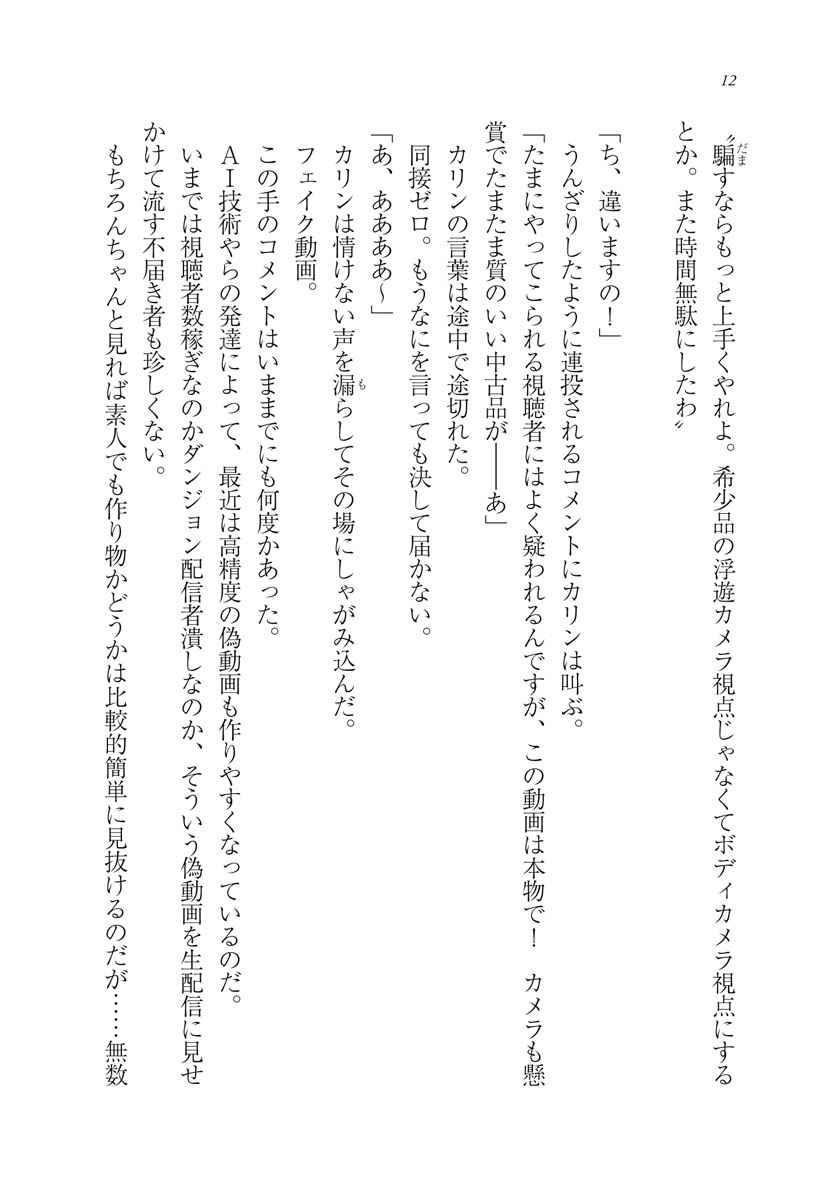 12
〝騙すならもっと上手くやれよ。希少品の浮遊カメラ視点じゃなくてボディカメラ視点にする
とか。また時間無駄にしたわ〟
「ち、違いますの！」
うんざりしたように連投されるコメントにカリンは叫ぶ。
「たまにやってこられる視聴者にはよく疑われるんですが、この動画は本物で！　カメラも懸
賞でたまたま質のいい中古品が――あ」
カリンの言葉は途中で途切れた。
同接ゼロ。もうなにを言っても決して届かない。
「あ、ああああ～」
カリンは情けない声を漏らしてその場にしゃがみ込んだ。
フェイク動画。
この手のコメントはいままでにも何度かあった。
ＡＩ技術やらの発達によって、最近は高精度の偽動画も作りやすくなっているのだ。
いまでは視聴者数稼ぎなのかダンジョン配信者潰しなのか、そういう偽動画を生配信に見せ
かけて流す不届き者も珍しくない。
もちろんちゃんと見れば素人でも作り物かどうかは比較的簡単に見抜けるのだが……無数